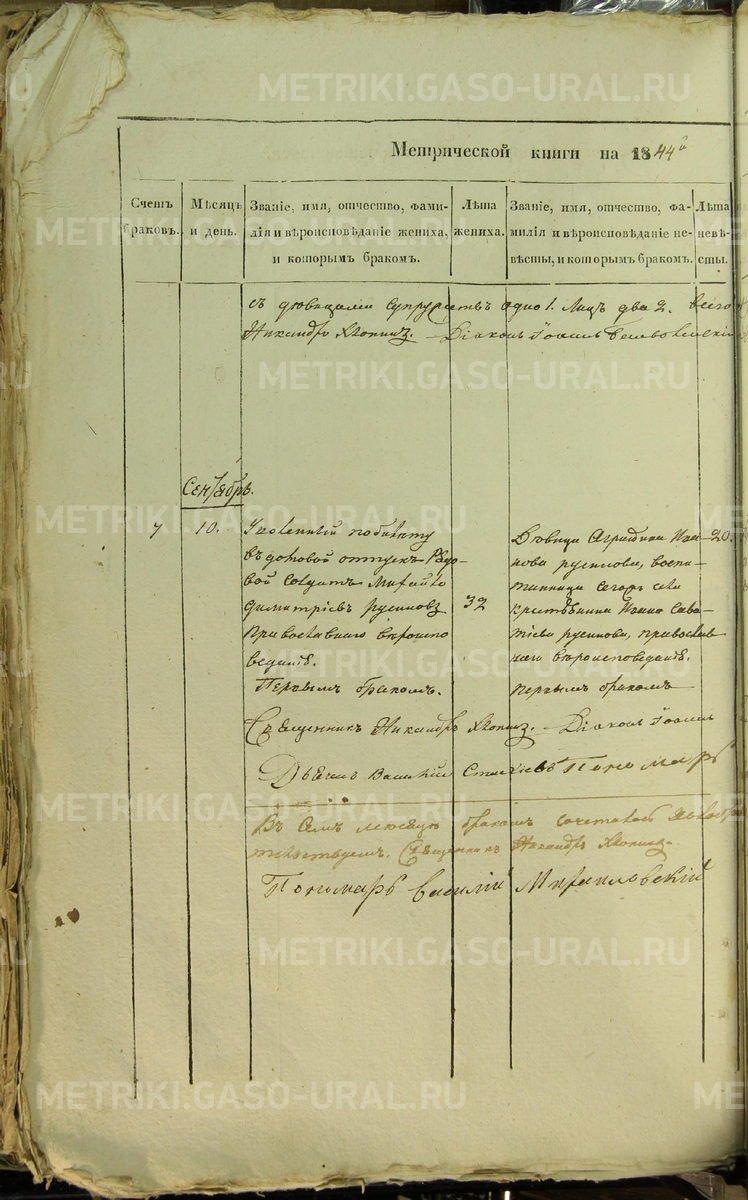 METRIKI.GASO-URAL.RU
Метрической книги на 1844й
Счетъ браковъ.
Мѣсяцъ и день.
Званіе, имя, отчество, фамилія и вѣроисповѣданіе жениха, и которымъ бракомъ.
Лѣта жениха.
Званіе, имя, отчество, фамилія и вѣроисповѣданіе невѣсты, и которымъ бракомъ.
Лѣта невѣсты.
съ супружествъ одно 1. Лицъ два 2. всего
Никандръ Хлопинъ. – Діаконъ Іоаннъ
Сентябрь.
7
10.
Уволенный по билету
въ годовой отпускъ Рядо-
вой Солдатъ Михайло
Димитріевъ Русиновъ
Православнаго вѣроиспо
веданія.
Первымъ бракомъ.
32
Дѣвица Агрипина Ива-
нова русинова, воспи-
танница села
крестьянина Ивана Сава-
тіева русинова, православ
наго вѣроисповеданія.
первымъ бракомъ
20.
Священникъ Никандръ Хлопинъ. – Діаконъ Іоаннъ
Дьячекъ Василий Пономарь
Въ семъ месяцѣ бракомъ
Священникъ Никандръ Хлопинъ.
Пономарь Василий